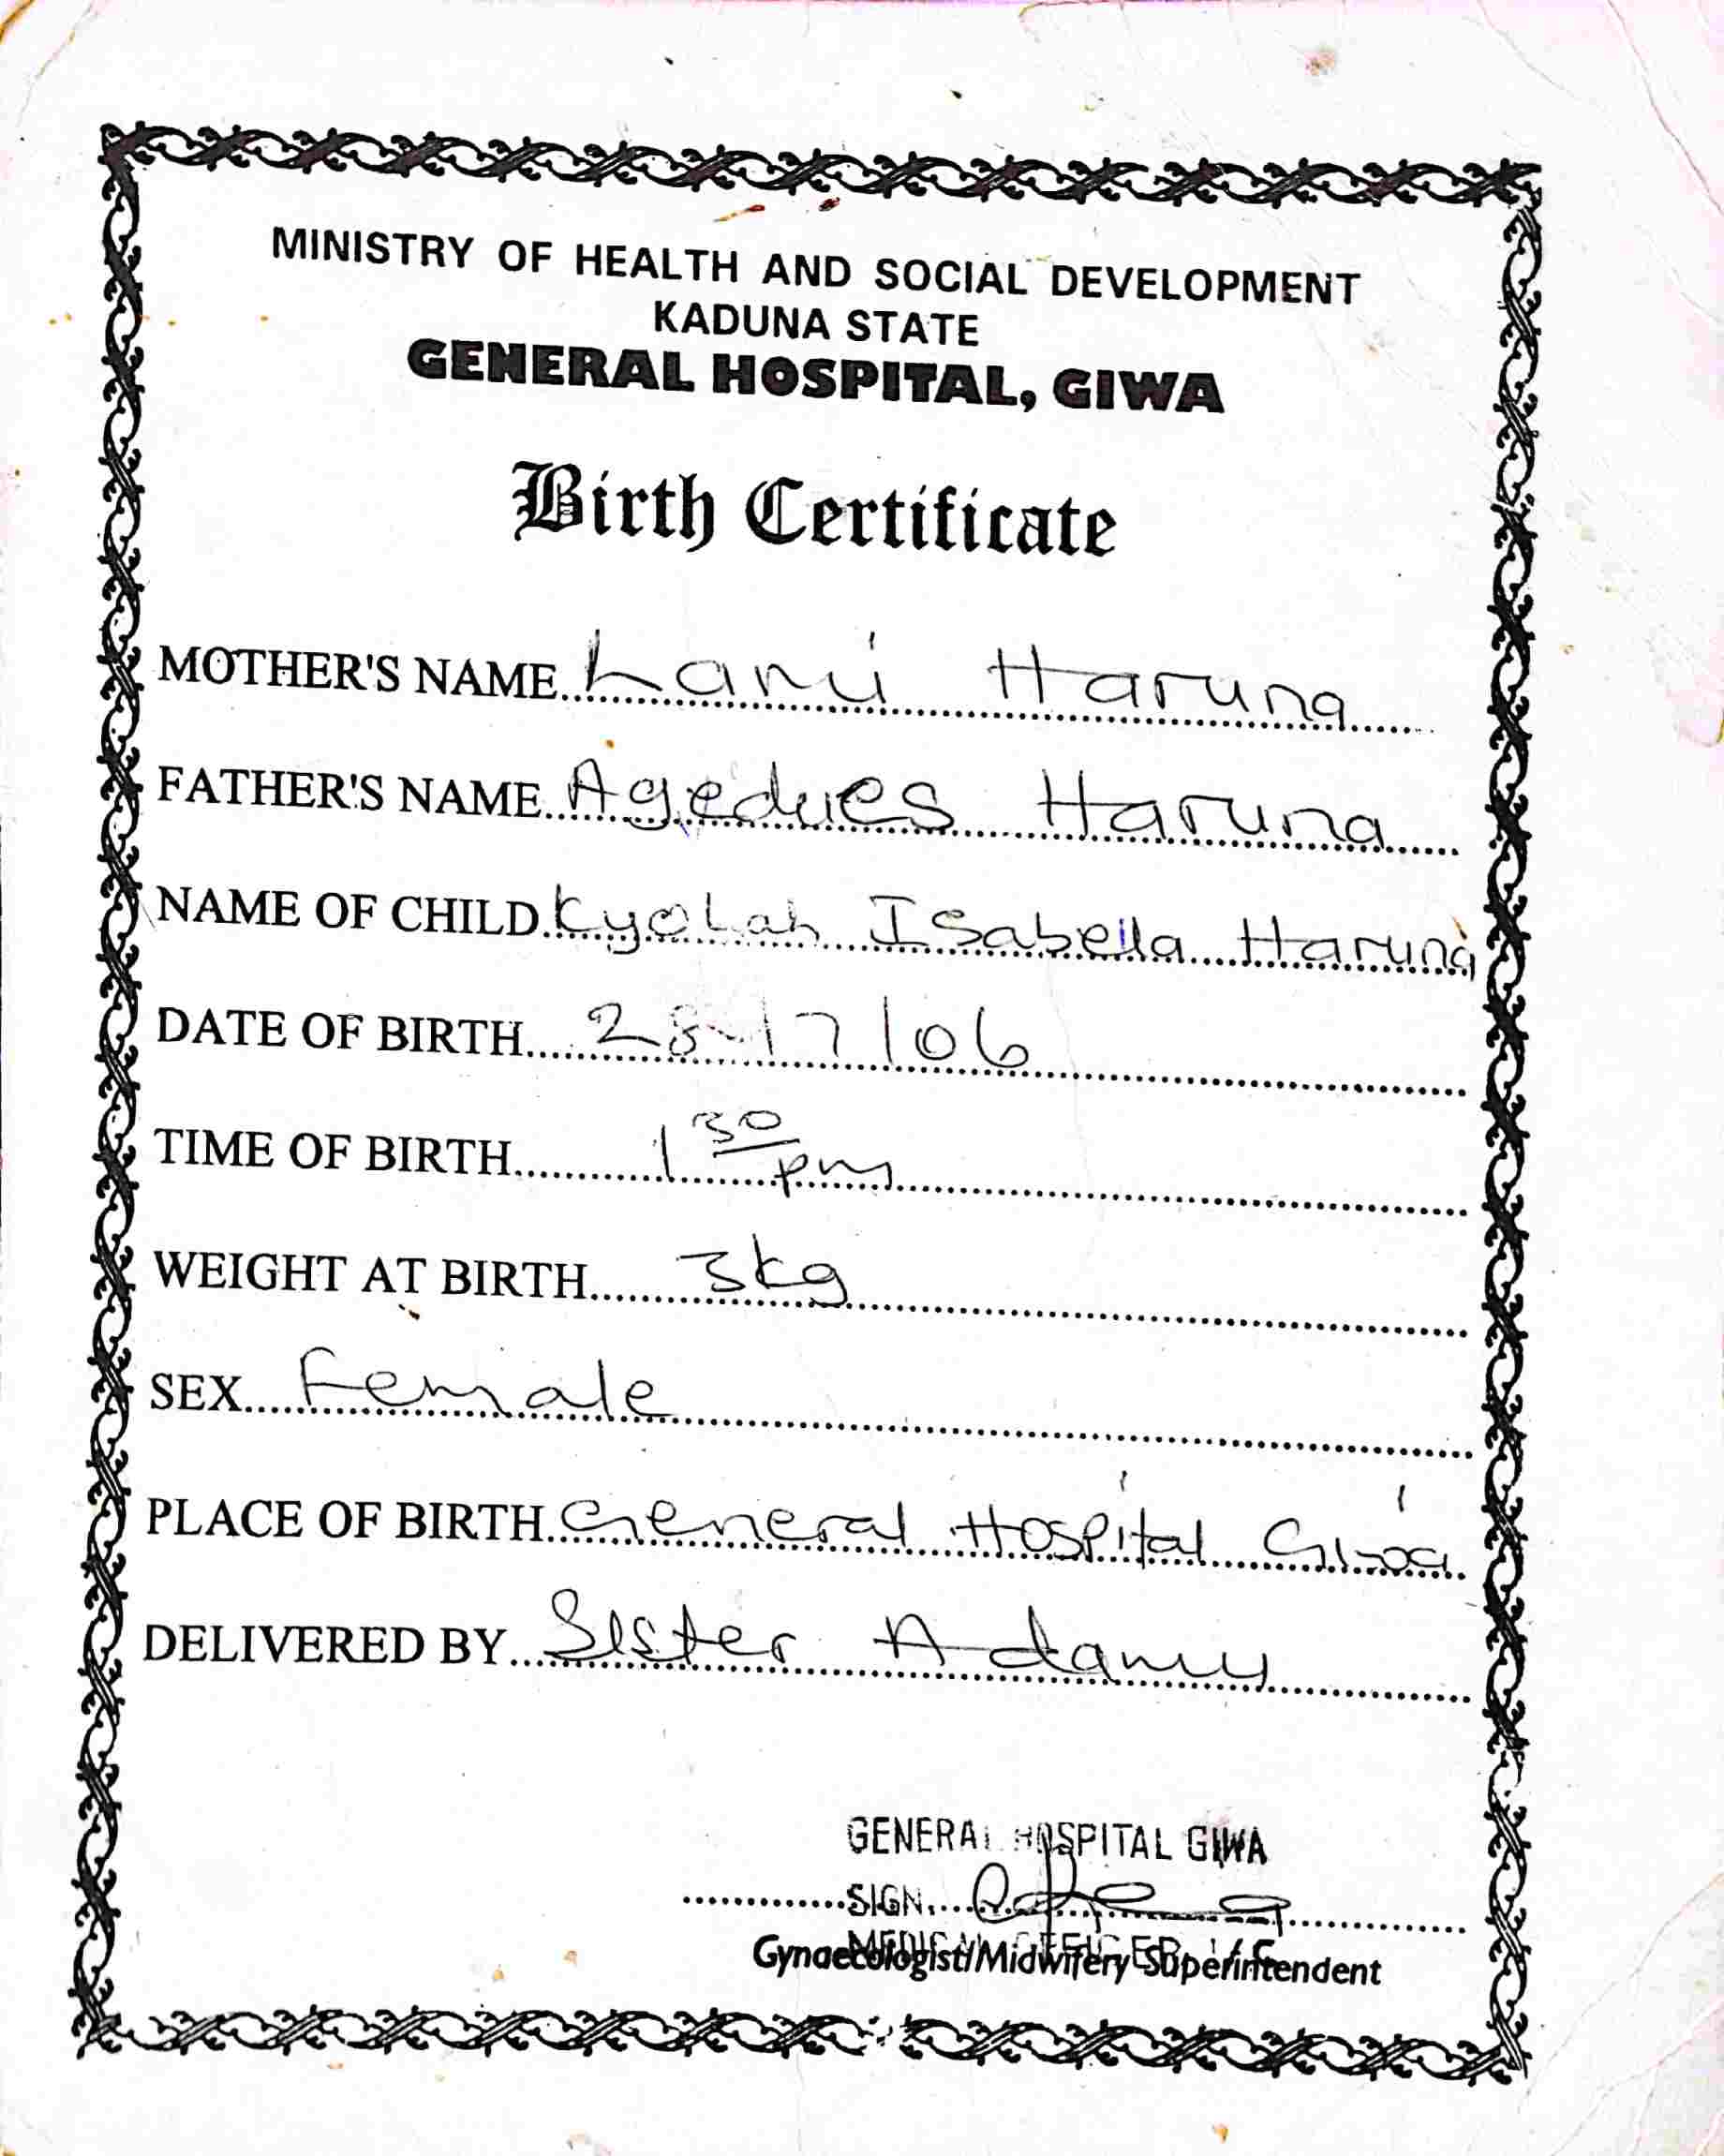 MINISTRY OF HEALTH AND SOCIAL DEVELOPMENT
KADUNA STATE
GENERAL HOSPITAL, GIWA
Birth Certificate
MOTHER'S NAME Lami Haruna
FATHER'S NAME Agedues Haruna
NAME OF CHILD Kyolah Isabella Haruna
DATE OF BIRTH 28/7/06
TIME OF BIRTH 1 30 pm
WEIGHT AT BIRTH 3kg
SEX Female
PLACE OF BIRTH General Hospital Giwa
DELIVERED BY Sister Adamu
GENERAL HOSPITAL GIWA
SIGN
MEDICAL OFFICER I/C
Gynaecologist/Midwifery Superintendent